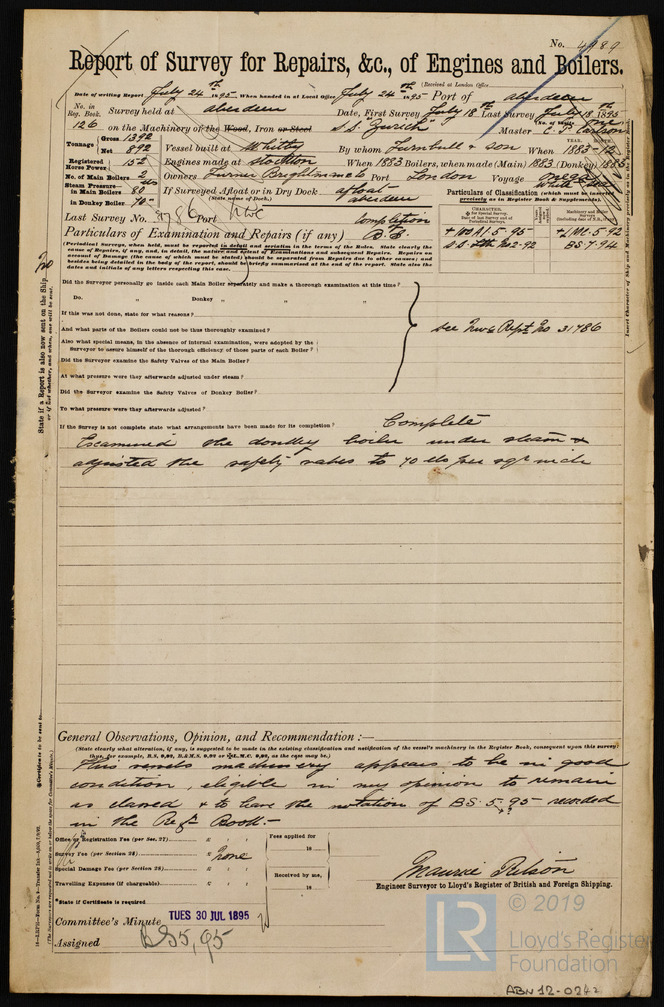 No. 4989
Report of Survey for Repairs, &c., of Engines and Boilers.
(Received at London Office
Date of writing Report July 24th 1895 When handed in at Local Office July 24th 1895 Port of Aberdeen
No. in Reg. Book. Survey held at Aberdeen Date, First Survey July 18th Last Survey July 18th 1895
126 on the Machinery of the Wood, Iron or Steel S.S. Zurich Master C. P. Carlson
(No. of Visits One
Tonnage: Gross 1392
Net 892
Vessel built at Whitby By whom Turnbull & Son When 1883-12
Registered Horse Power 152
Engines made at Stockton When 1883 Boilers, when made (Main) 1883 (Donkey) 1883
No. of Main Boilers 2
Owners Turner Brightman & Co Port London Voyage Onega White Sea
Steam Pressure in Main Boilers 80
in Donkey Boiler 70
If Surveyed Afloat or in Dry Dock afloat
(State name of Dock.) Aberdeen
Particulars of Classification (which must be inserted precisely as in Register Book & Supplements).
Last Survey No. Port
Completion
Particulars of Examination and Repairs (if any) B.S.
CHARACTER.
+100A1 5-95
+LMC 5.92
S.S. No2-92
BS 7.94
(Periodical Surveys, when held, must be reported in detail and seriatim in the terms of the Rules. State clearly the cause of Repairs, if any, and, in detail, the nature and extent of Examinations and subsequent Repairs. Repairs on account of Damage (the cause of which must be stated) should be separated from Repairs due to other causes; and besides being detailed in the body of the report, should be briefly summarised at the end of the report. State also the dates and initials of any letters respecting this case.
Did the Surveyor personally go inside each Main Boiler separately and make a thorough examination at this time?
Do. „ Donkey „ „ „ ?
If this was not done, state for what reasons?
And what parts of the Boilers could not be thus thoroughly examined?
See Nwc Rept No 31786
Also what special means, in the absence of internal examination, were adopted by the
Surveyor to assure himself of the thorough efficiency of those parts of each Boiler?
Did the Surveyor examine the Safety Valves of the Main Boiler?
At what pressure were they afterwards adjusted under steam?
Did the Surveyor examine the Safety Valves of Donkey Boiler?
To what pressure were they afterwards adjusted?
If the Survey is not complete state what arrangements have been made for its completion? Complete
Examined the donkey boiler under steam &
adjusted the safety valves to 70 lbs per sqr inch
State if a Report is also now sent on the Ship
or if not whether, and when, one will be sent.
No
Insert Character of Ship and Machinery precisely as in
General Observations, Opinion, and Recommendation :—
(State clearly what alteration, if any, is suggested to be made in the existing classification and notification of the vessel's machinery in the Register Book, consequent upon this survey)
This vessels machinery appears to be in good
condition, eligible in my opinion to remain
as classed & to have the notation of BS. 5.95 recorded
in the Regr Book.-
Office or Registration Fee (per Sec. 27) £ : :
Survey Fee (per Section 28) £ None
Special Damage Fee (per Section 28) £ : :
Travelling Expenses (if chargeable) £ : :
Fees applied for
18
Received by me,
18
Engineer Surveyor to Lloyd's Register of British and Foreign Shipping.
*State if Certificate is required
Committee's Minute TUES 30 JUL 1895
Assigned BS 5,95
© 2019
LR
Lloyd's Register
Foundation
ABN12-0242